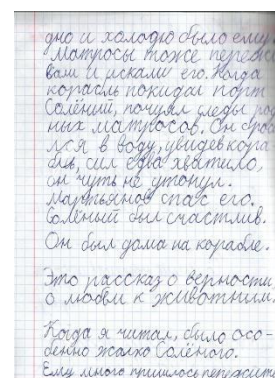 дно и холодно было ему
Матросы тоже переж
вали и искали его. Когда
корабль покидал порт
Солёный, почуял следы род
ных матросов. Он бро
лся в воду, увидев кора
бль, сил едва хватило,
он чуть не утонул.
Мартьянов спас его.
Солёный был счастлив.
Он был дома на корабле.
Это рассказ о верности,
о любви к животным.
Когда я читал, было осо-
бенно жалко Солёного.
Ему много пришлось пережить